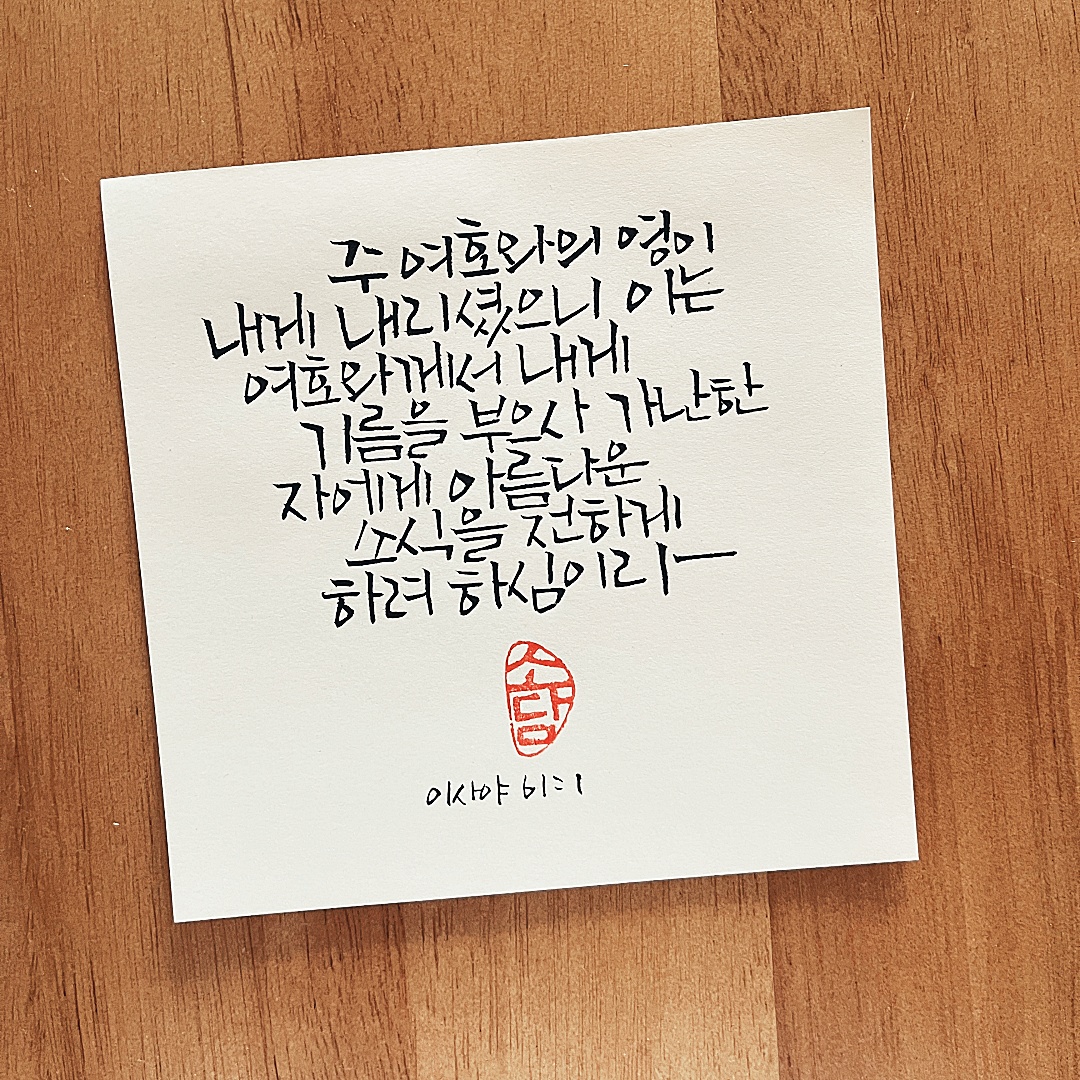 주 여호와의 영이
내게 내리셨으니 이는
여호와께서 내게
기름을 부으사 가난한
자에게 아름다운
소식을 전하게
하려 하심이라
소담
이사야 61:1